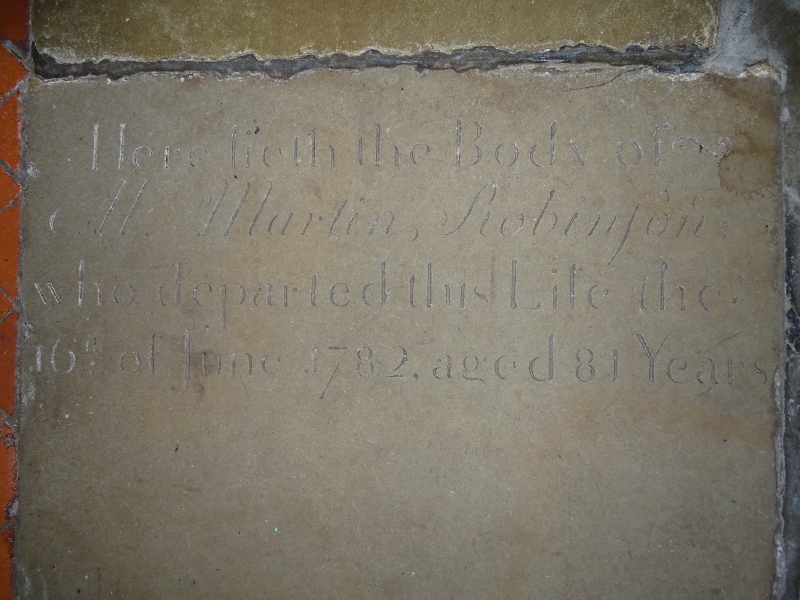 Here lieth the Body of
M.r Martin, Robinſon,
who departed this Life the
16.th of June 1782, aged 81 Years